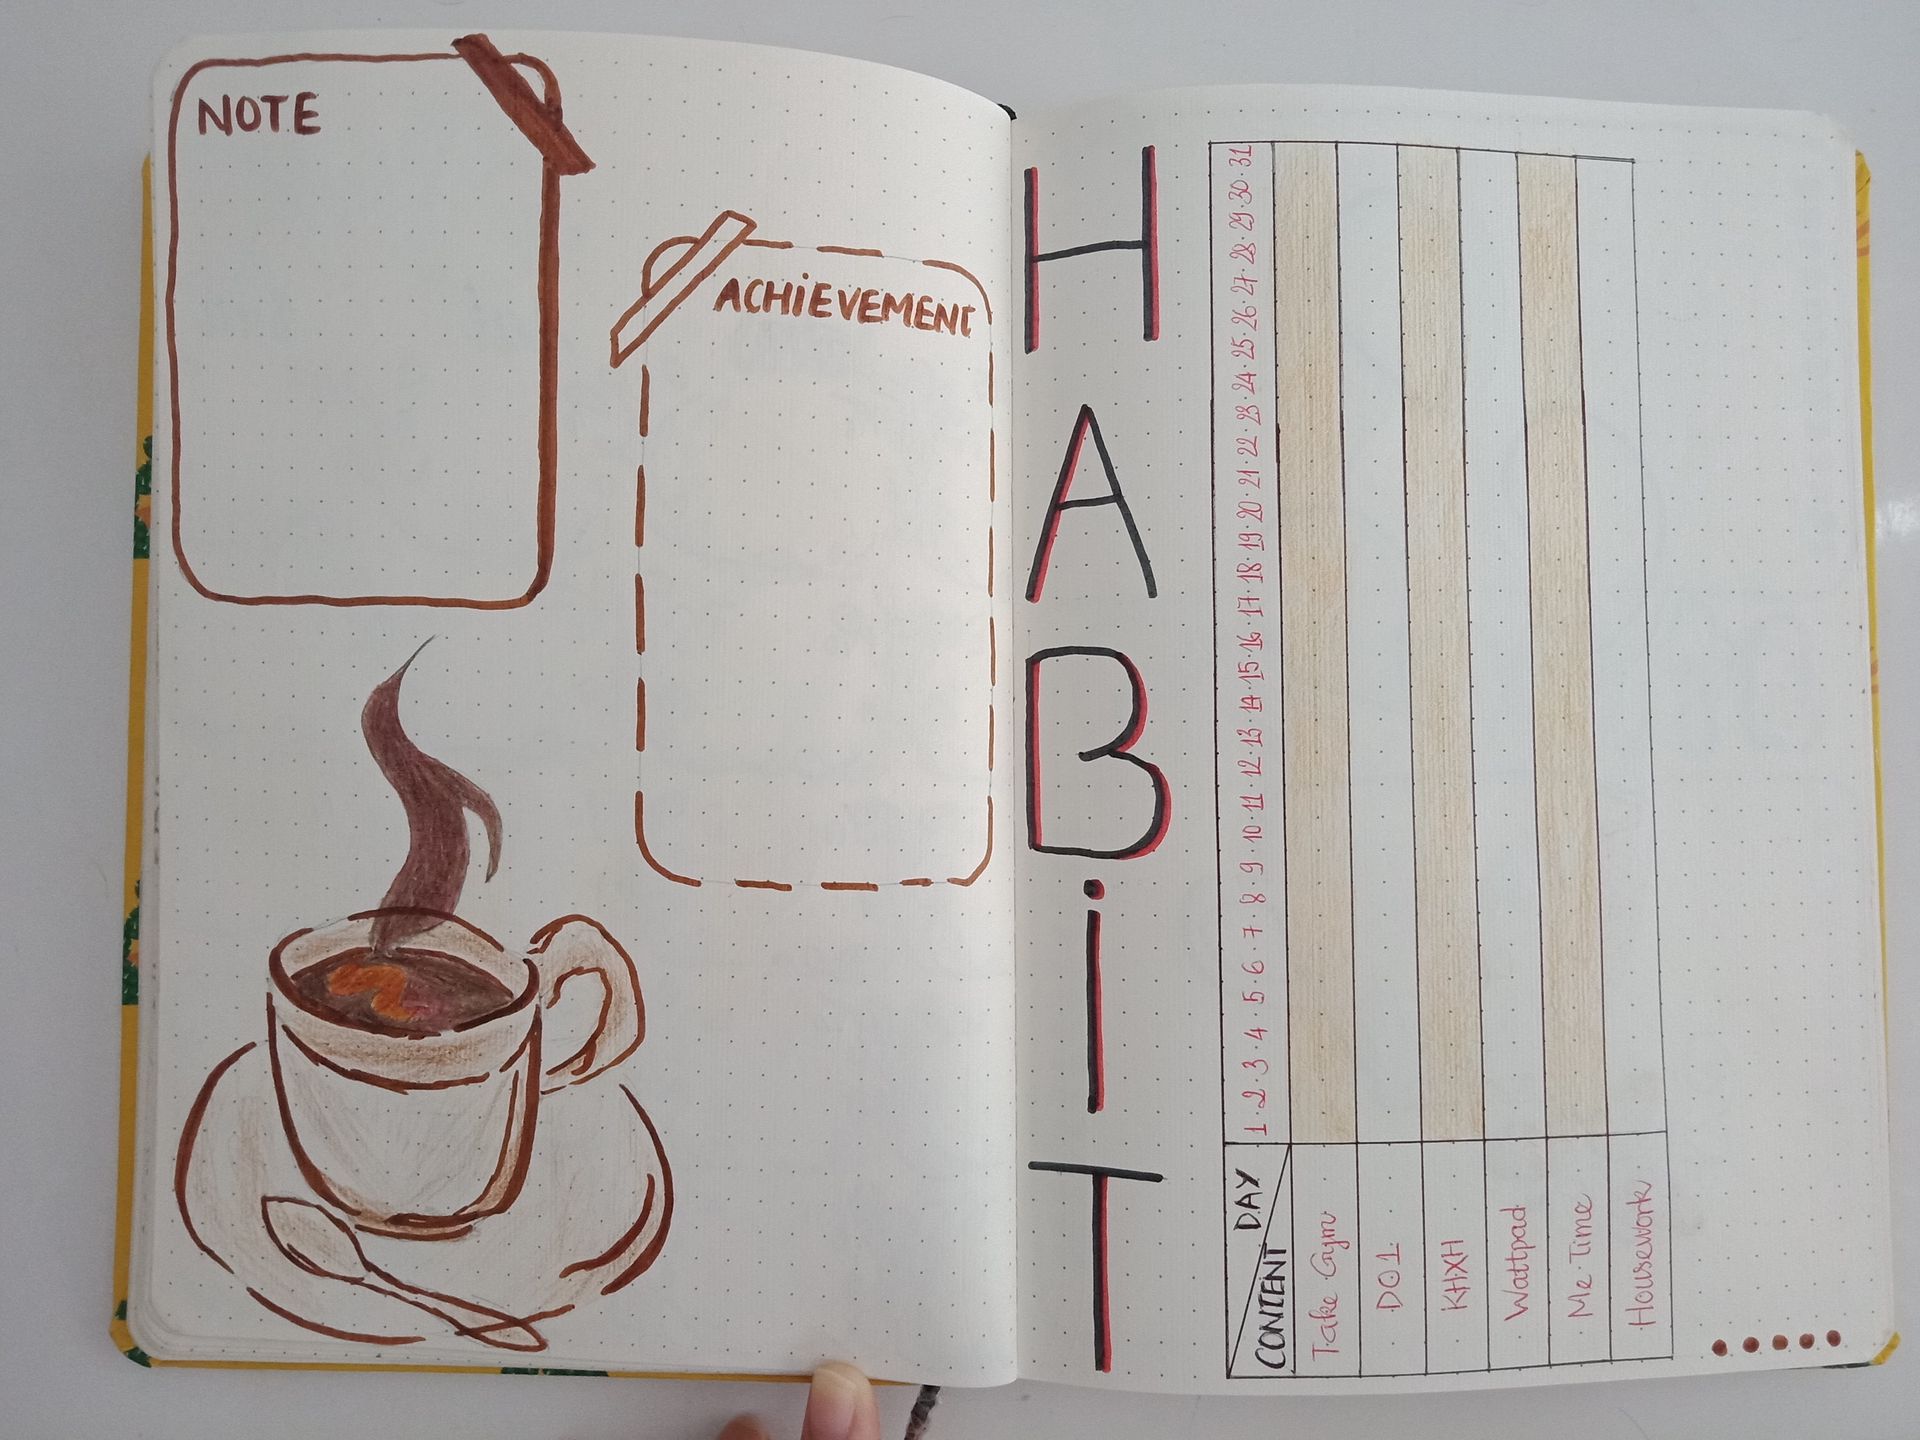 NOTE
ACHiEVEMENT
HABiT
CONTENT DAY 1·2·3·4·5·6·7·8·9·10·11·12·13·14·15·16·17·18·19·20·21·22·23·24·25·26·27·28·29·30·31
Take Gym
D01
KHXH
Wattpad
Me Time
Housework